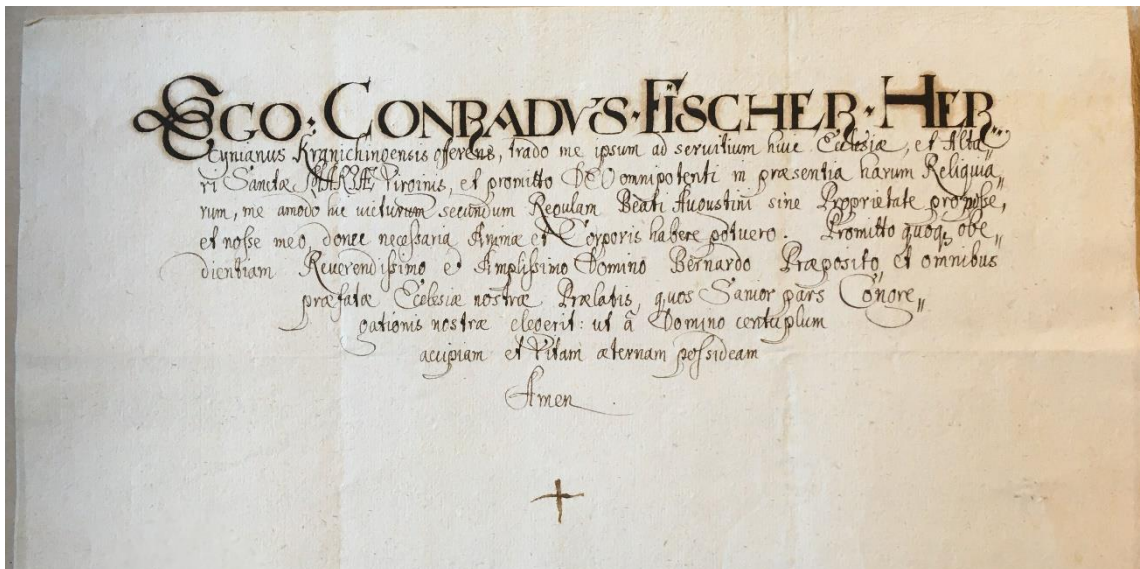 EGO · CONRADVS · FISCHER · HER„
cynianus Kranichingensis offerens, trado me ipsum ad servitium huic Ecclesiæ, et Alta„
ri Sanctæ MARIÆ Virginis, et promitto DEO omnipotenti in præsentia harum Reliquia„
rum, me amodo hic victurum secundum Regulam Beati Augustini sine Proprietate pro posse,
et nosse meo, donec necessaria Animæ et Corporis habere potuero. Promitto quoq3 obe„
dientiam Reverendissimo et Amplissimo Domino Bernardo Præposito, et omnibus
præfatæ Ecclesiæ nostræ Prælatis, quos Sanior pars Congre„
gationis nostræ elegerit: ut â Domino centuplum
accipiam et Vitam æternam possideam
Amen